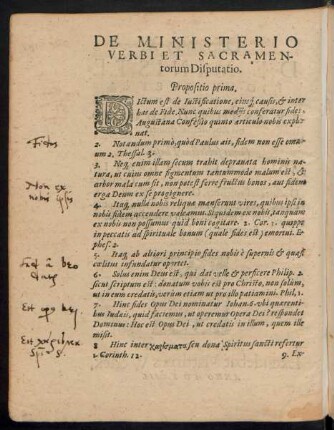 DE MINISTERIO
VERBI ET SACRAMEN-
torum Disputatio.
Propositio prima,
DIctum est de Iustificatione, eiusq́ causis, & inter
has de Fide. Nunc quibus modis conferatur fides,
Augustana Confessio quinto articulo nobis expli-
cat.
2. Notandum primò, quòd Paulus ait, fidem non esse omni-
um 2. Thessal. 3.
3. Neq; enim illam secum trahit deprauata hominis na-
tura, ut cuius omne figmentum tantummodo malum est, &
arbor mala cum sit, non potest ferre fructus bonos, aut fidem
erga Deum ex se progignere.
4. Itaq; nulla nobis reliqua manserunt vires, quibus ipsi in
nobis fidem accendere valeamus. Siquidem ex nobis, tanquam
ex nobis non possumus quid boni cogitare 2. Cor. 3. quippe
in peccatis ad spirituale bonum (quale fides est) emortui. E-
phes: 2.
5. Itaq; ab altiori principio fides nobis è supernis & quasi
cœlitus infundatur oportet.
6. Solus enim Deus est, qui dat velle & perficere Philip. 2
sicut scriptum est: donatum vobis est pro Christo, non solum,
ut in eum credatis, verùm etiam ut pro illo patiamini. Phil. 1.
7. Hinc fides Opus Dei nominatur Iohan. 6. vbi quærenti-
bus Iudæis, quid faciamus, ut operemur Opera Dei? respondet
Dominus: Hoc est Opus Dei, ut credatis in illum, quem ille
misit.
8. Hinc inter χαρίσματα seu dona Spiritus sancti refertur
1. Corinth. 12.
9. Ex-
Fides
Non ex
nobis ipsis